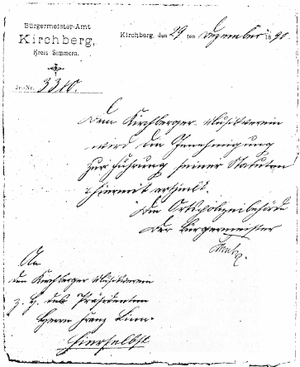 Bürgermeister-Amt
Kirchberg,
Kreis Simmern.
Kirchberg, den 29 ten Dezember 1890.
Jr. Nr. 3310.
Dem Kirchberger Musikverein
wird die Genehmigung
zur Führung seiner Statuten
hiermit ertheilt.
Die Ortspolizeibehörde
Der Bürgermeister
An
den Kirchberger Musikverein
z. H. des Präsidenten
Herrn Franz
Hierselbst